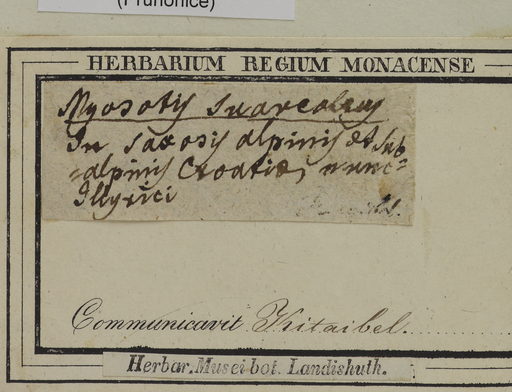 (Prunonice)
HERBARIUM REGIUM MONACENSE
Myosotis suaveolens
In saxosis alpinis et sub
=alpinis Croatiae, nunc
Illyrici
Communicavit Kitaibel.
Herbar. Musei bot. Landishuth.